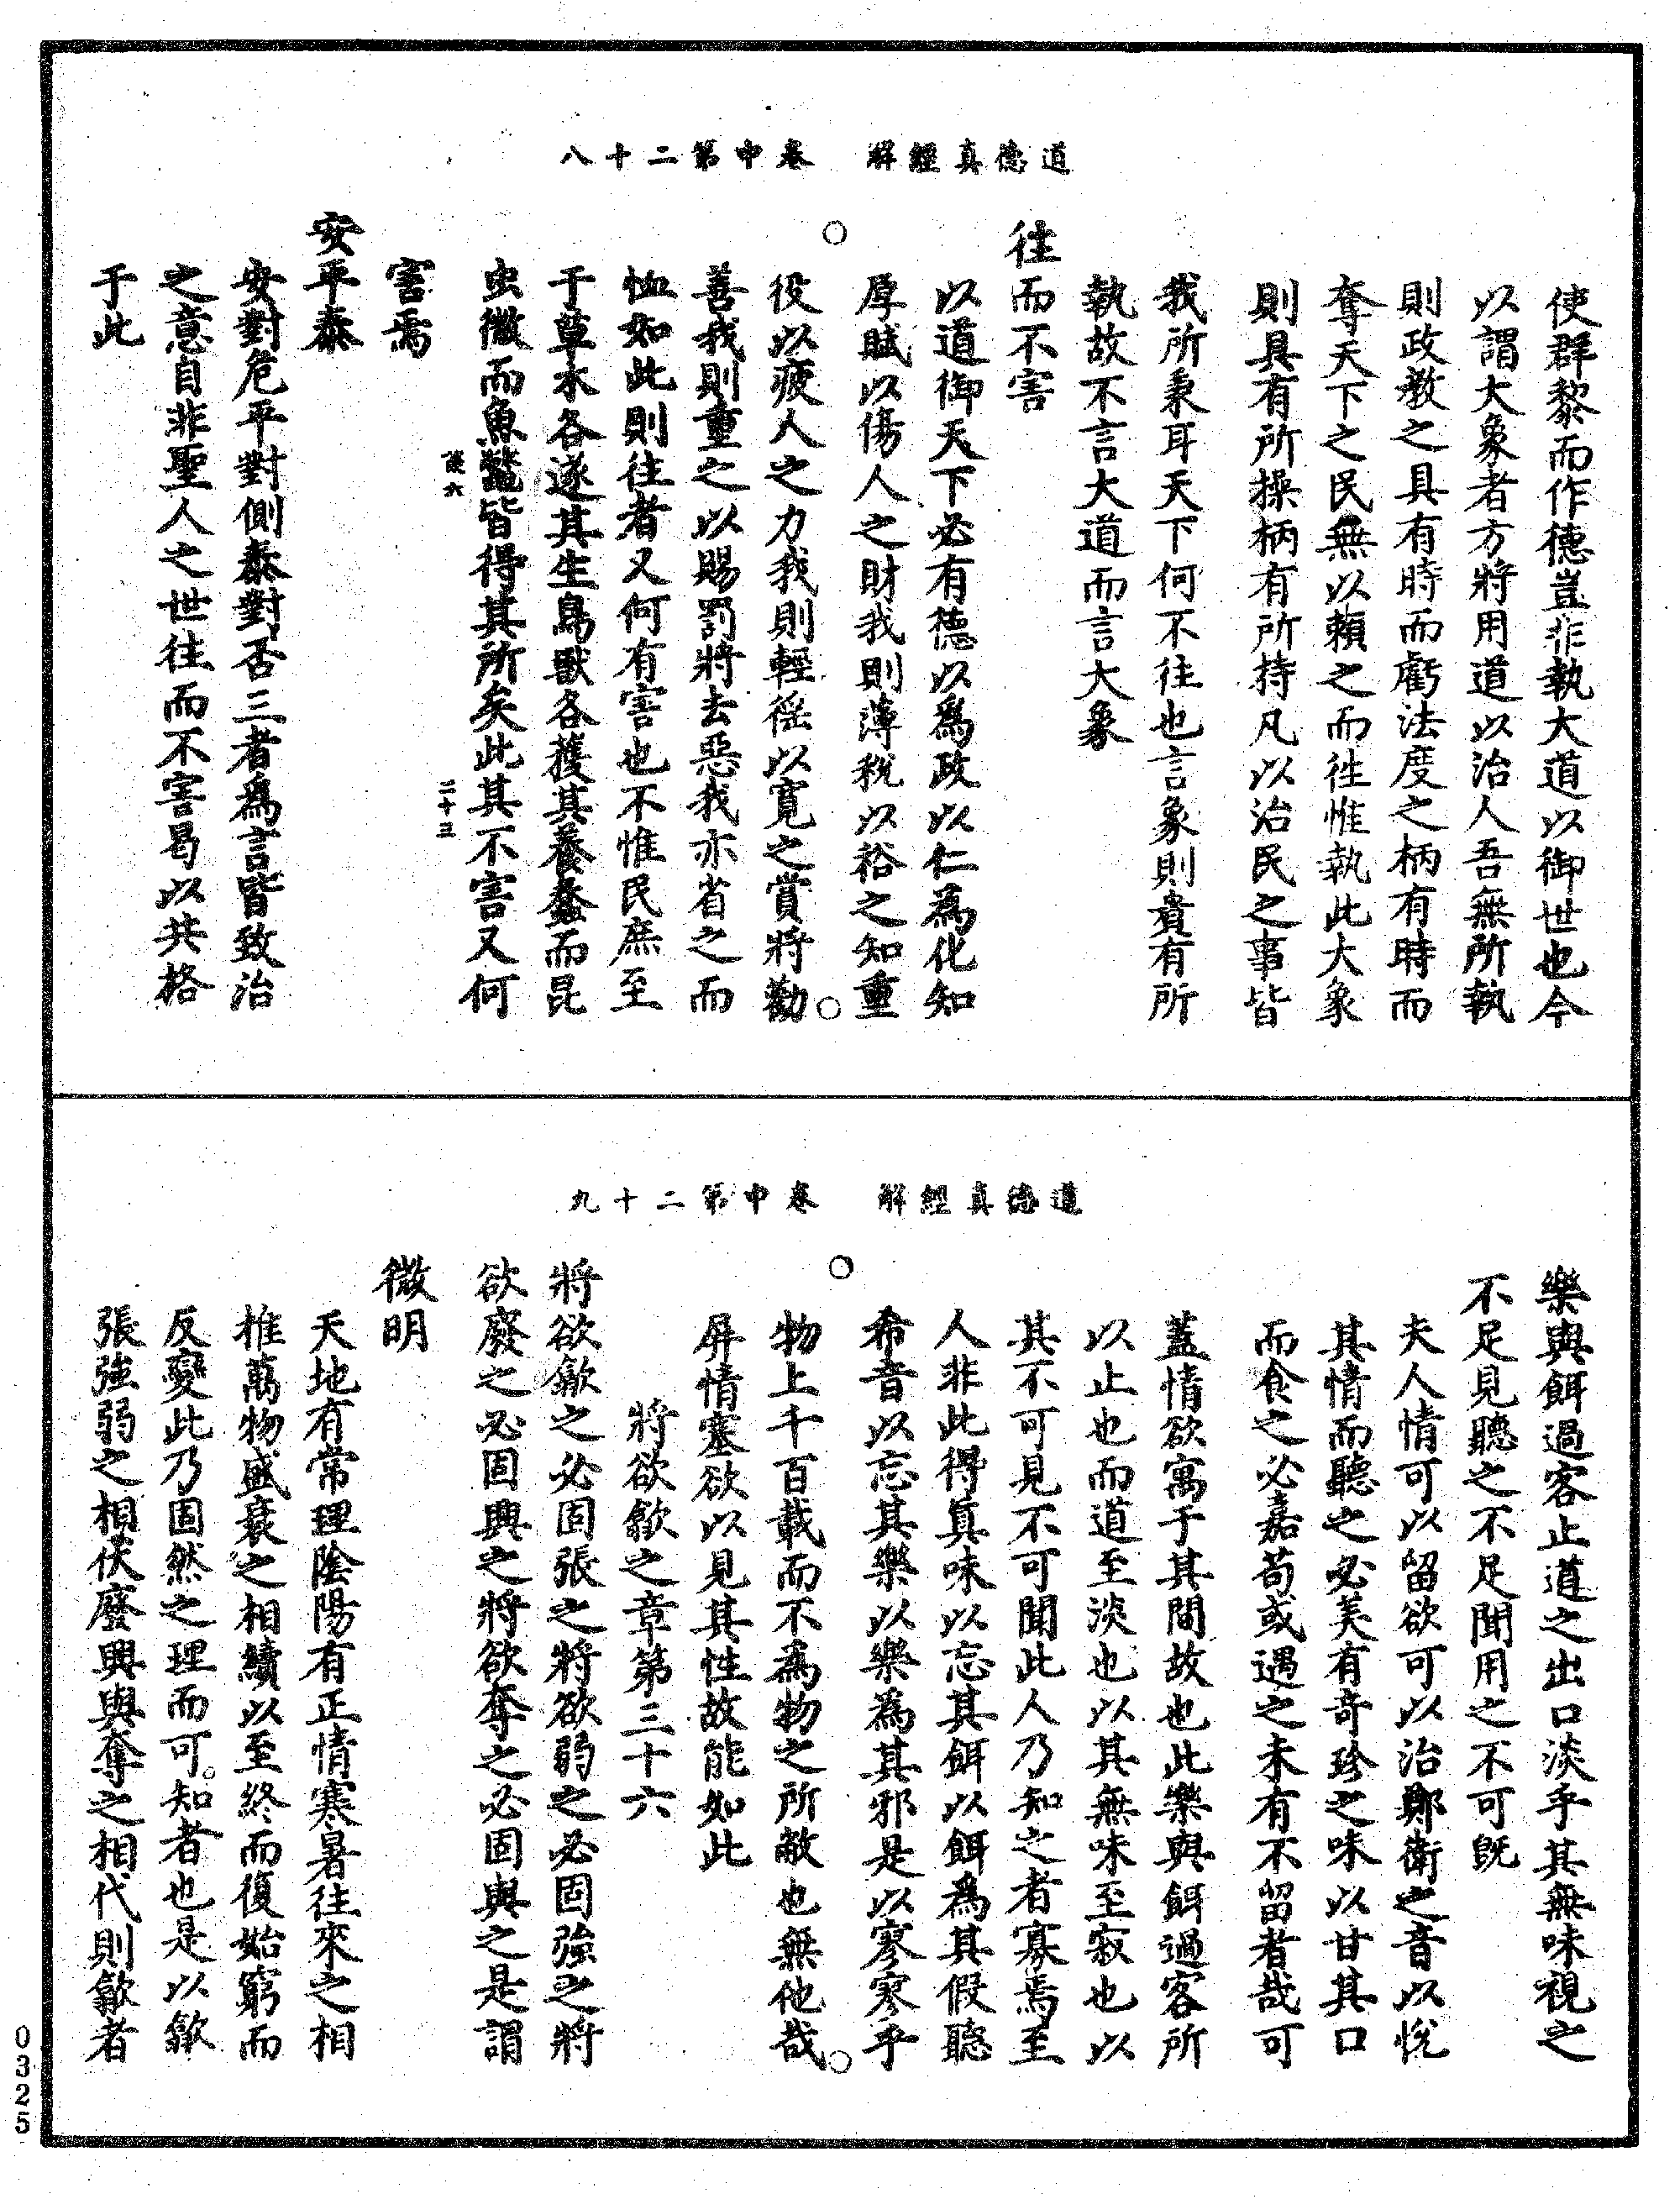 道德真經解　卷中第二十八
使群黎而作德豈非執大道以御世也今
以謂大象者方將用道以治人吾無所執
則政教之具有時而虧法度之柄有時而
奪天下之民無以賴之而徃惟執此大象
則具有所操柄有所持凡以治民之事皆
我所秉耳天下何不往也言象則貴有所
執故不言大道而言大象
往而不害
以道御天下必有德以爲政以仁爲化知
厚賦以傷人之財我則薄稅以裕之知重
役以疲人之力我則輕徭以寬之賞將勸
善我則重之以賜罰將去惡我亦省之而
恤如此則往者又何有害也不惟民庶至
于草木各遂其生鳥獸各獲其養蠢而昆
虫微而魚鼈皆得其所矣此其不害又何
談六　二十三
害焉
安平泰
安對危平對側泰對否三者爲言皆致治
之意自非聖人之世往而不害曷以共格
于此
道德真經解　卷中第二十九
樂與餌過客止道之出口淡乎其無味視之
不足見聽之不足聞用之不可旣
夫人情可以留欲可以治鄭衛之音以悅
其情而聽之必美有奇珍之味以甘其口
而食之必嘉苟或遇之未有不留者哉可
蓋情欲寓于其間故也此樂與餌過客所
以止也而道至淡也以其無味至寂也以
其不可見不可聞此人乃知之者寡焉至
人非此得眞味以忘其餌以餌爲其假聽
希音以忘其樂以樂為其邪是以寥寥乎
物上千百載而不爲物之所敵也無他哉
屏情塞欲以見其性故能如此
將欲歙之章第三十六
將欲歙之必固張之將欲弱之必固強之將
欲廢之必固興之將欲奪之必固與之是謂
微明
天地有常理陰陽有正情寒暑往來之相
推萬物盛衰之相續以至終而復始窮而
反變此乃固然之理而可知者也是以歙
張強弱之相伏廢興與奪之相代則歙者
0325